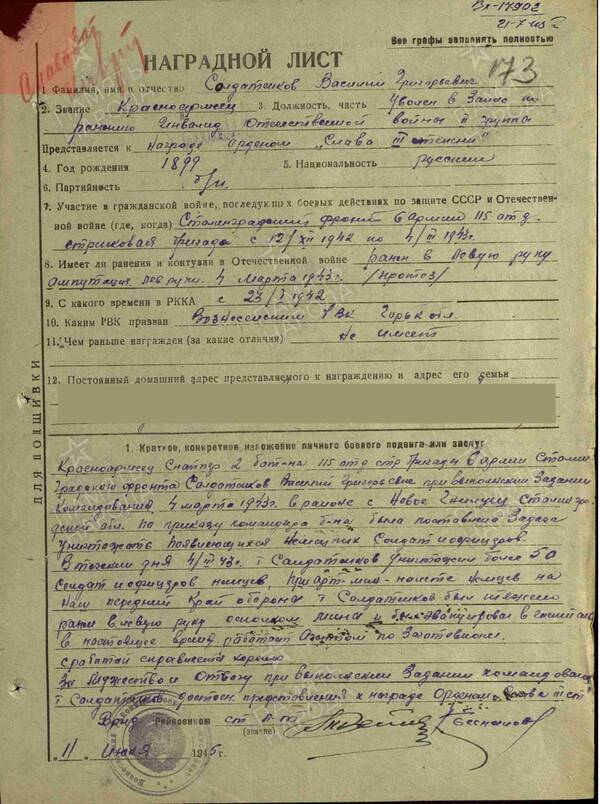 Вх-17902
21-7-45г
Все графы заполнять полностью
НАГРАДНОЙ ЛИСТ
173
1. Фамилия, имя и отчество Солдатенков Василий Григорьевич
2. Звание Красноармеец 3. Должность, часть Уволен в Запас по
ранению Инвалид Отечественной войны II группа
Представляется к награде орденом „Слава III степени"
4. Год рождения 1899 5. Национальность русский
6. Партийность б/п.
7. Участие в гражданской войне, последующих боевых действиях по защите СССР и Отечествен-
ной войне (где, когда) Сталинградский фронт 6 армии 115 отд.
стрелковая бригада с 12/XII 1942 по 4/III 1943г.
8. Имеет ли ранения и контузии в Отечественной войне ранен в левую руку
ампутация лев. руки. 4 марта 1943г. /протез/
9. С какого времени в РККА с 23/I 1942
10. Каким РВК призван Вознесенским РВК Горьк. обл.
11. Чем раньше награжден (за какие отличия) не имеет
12. Постоянный домашний адрес представляемого к награждению и адрес его семьи
ДЛЯ ПОДШИВКИ
1. Краткое, конкретное изложение личного боевого подвига или заслуг
Красноармеец Снайпер 2 бат-на 115 отд стр бригады 6 армии Сталин-
градского фронта Солдатенков Василий Григорьевич при выполнении Задания
Командования 4 марта 1943г. в районе с Новое Сталингра-
дской обл. по приказу командира б-на была поставлена Задача
Уничтожать появляющихся немецких Солдат и офицеров.
В течении дня 4/III 43г. т Солдатенков Уничтожил более 50
солдат и офицеров немцев. При арт-мин-налете немцев на
наш передний Край обороны т Солдатенков был тяжело
ранен в левую руку осколком мины и был эвакуирован в госпиталь
в настоящее время работает Агентом по Заготовкам.
с работой справляется хорошо
За Мужество и Отвагу при выполнении Задания командования
т Солдатенков достоин представления к награде Орденом Слава III ст
Врид Райвоенком ст л-т
(звание)
11 июля 1945г.